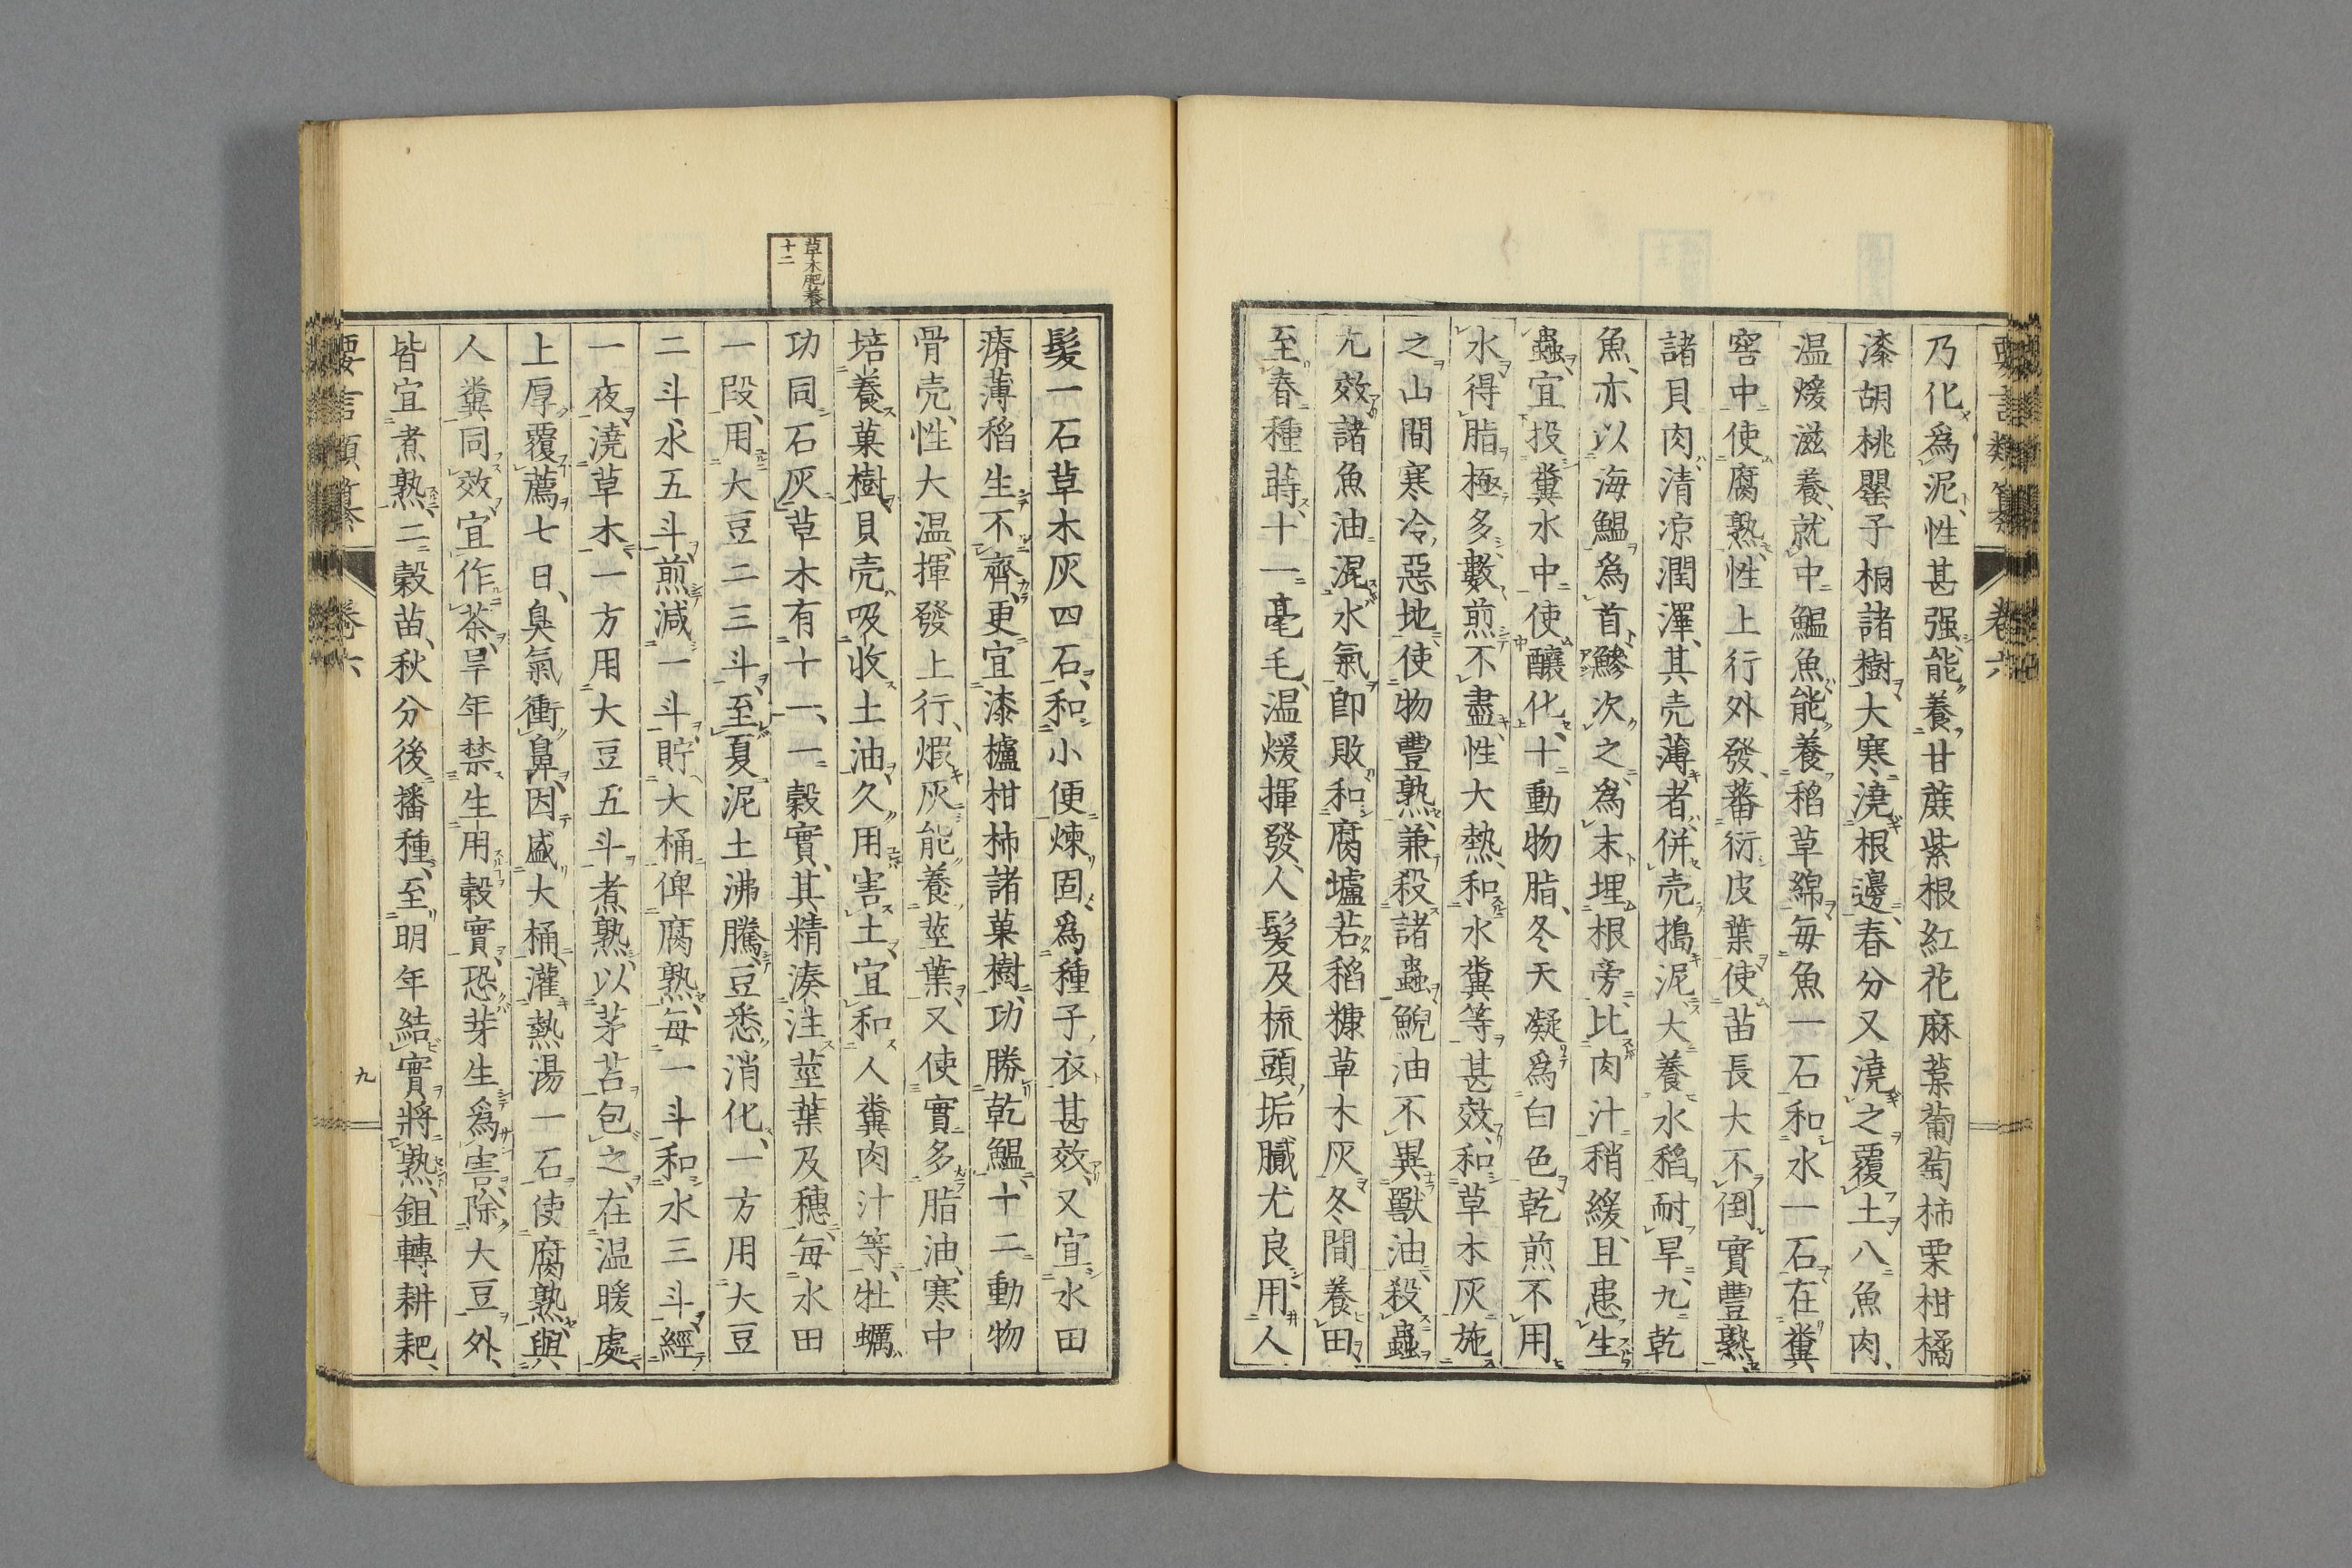 乃化爲泥、性甚强、能養甘蔗紫根紅花麻藥葡萄柿栗柑橘
漆胡桃罌子桐諸樹、大寒澆根邊、春分又澆之覆土、八魚肉、
温煖滋養、就中鰮魚能養稻草綿、每魚一石和水一石、在糞
窖中使腐熟、性上行外發、蕃衍皮葉、使苗長大不倒實豐熟、
諸貝肉清凉潤澤、其壳薄者併壳搗泥、大養水稻耐旱、九乾
魚、亦以海鰮爲首、鰺次之、爲末埋根旁、比肉汁稍緩、且患生
蟲、宜投糞水中使釀化、十動物脂、冬天凝爲白色、乾煎不用
水、得脂極多、數煎不盡、性大熱、和水糞等甚效、和草木灰施
之山間寒冷惡地、使物豐熟、兼殺諸蟲、鯢油不異獸油、殺蟲
尤效、諸魚油混水氣卽敗、和腐壚若稻糠草木灰、冬間養田、
至春種蒔、十一毫毛、温煖揮發、人髮及梳頭垢膩尤良、用人
要言類纂 卷六
草木肥養
十二
髮一石草木灰四石、和小便煉固、爲種子衣甚效、又宜水田
瘠薄稻生不齊、更宜漆櫨柑柿諸菓樹、功勝乾鰮、十二動物
骨壳、性大温、揮發上行、煆灰能養莖葉、又使實多脂油、寒中
培養菓樹、貝壳吸收土油、久用害土、宜和人糞肉汁等、牡蠣
功同石灰、草木有十一、一穀實、其精湊注莖葉及穗、每水田
一段、用大豆二三斗、至夏泥土沸騰、豆悉消化、一方用大豆
二斗、水五斗、煎減一斗、貯大桶俾腐熟、每一斗和水三斗、經
一夜、澆草木、一方用大豆五斗煮熟、以茅苫包之、在温暖處
上厚覆薦七日、臭氣衝鼻、因盛大桶、灌熱湯一石使腐熟、與
人糞同效、宜作茶、旱年禁生用穀實、恐芽生爲害、除大豆外、
皆宜煮熟、二穀苗、秋分後播種、至明年結實將熟、鉏轉耕耙、
要言類纂 卷六 九